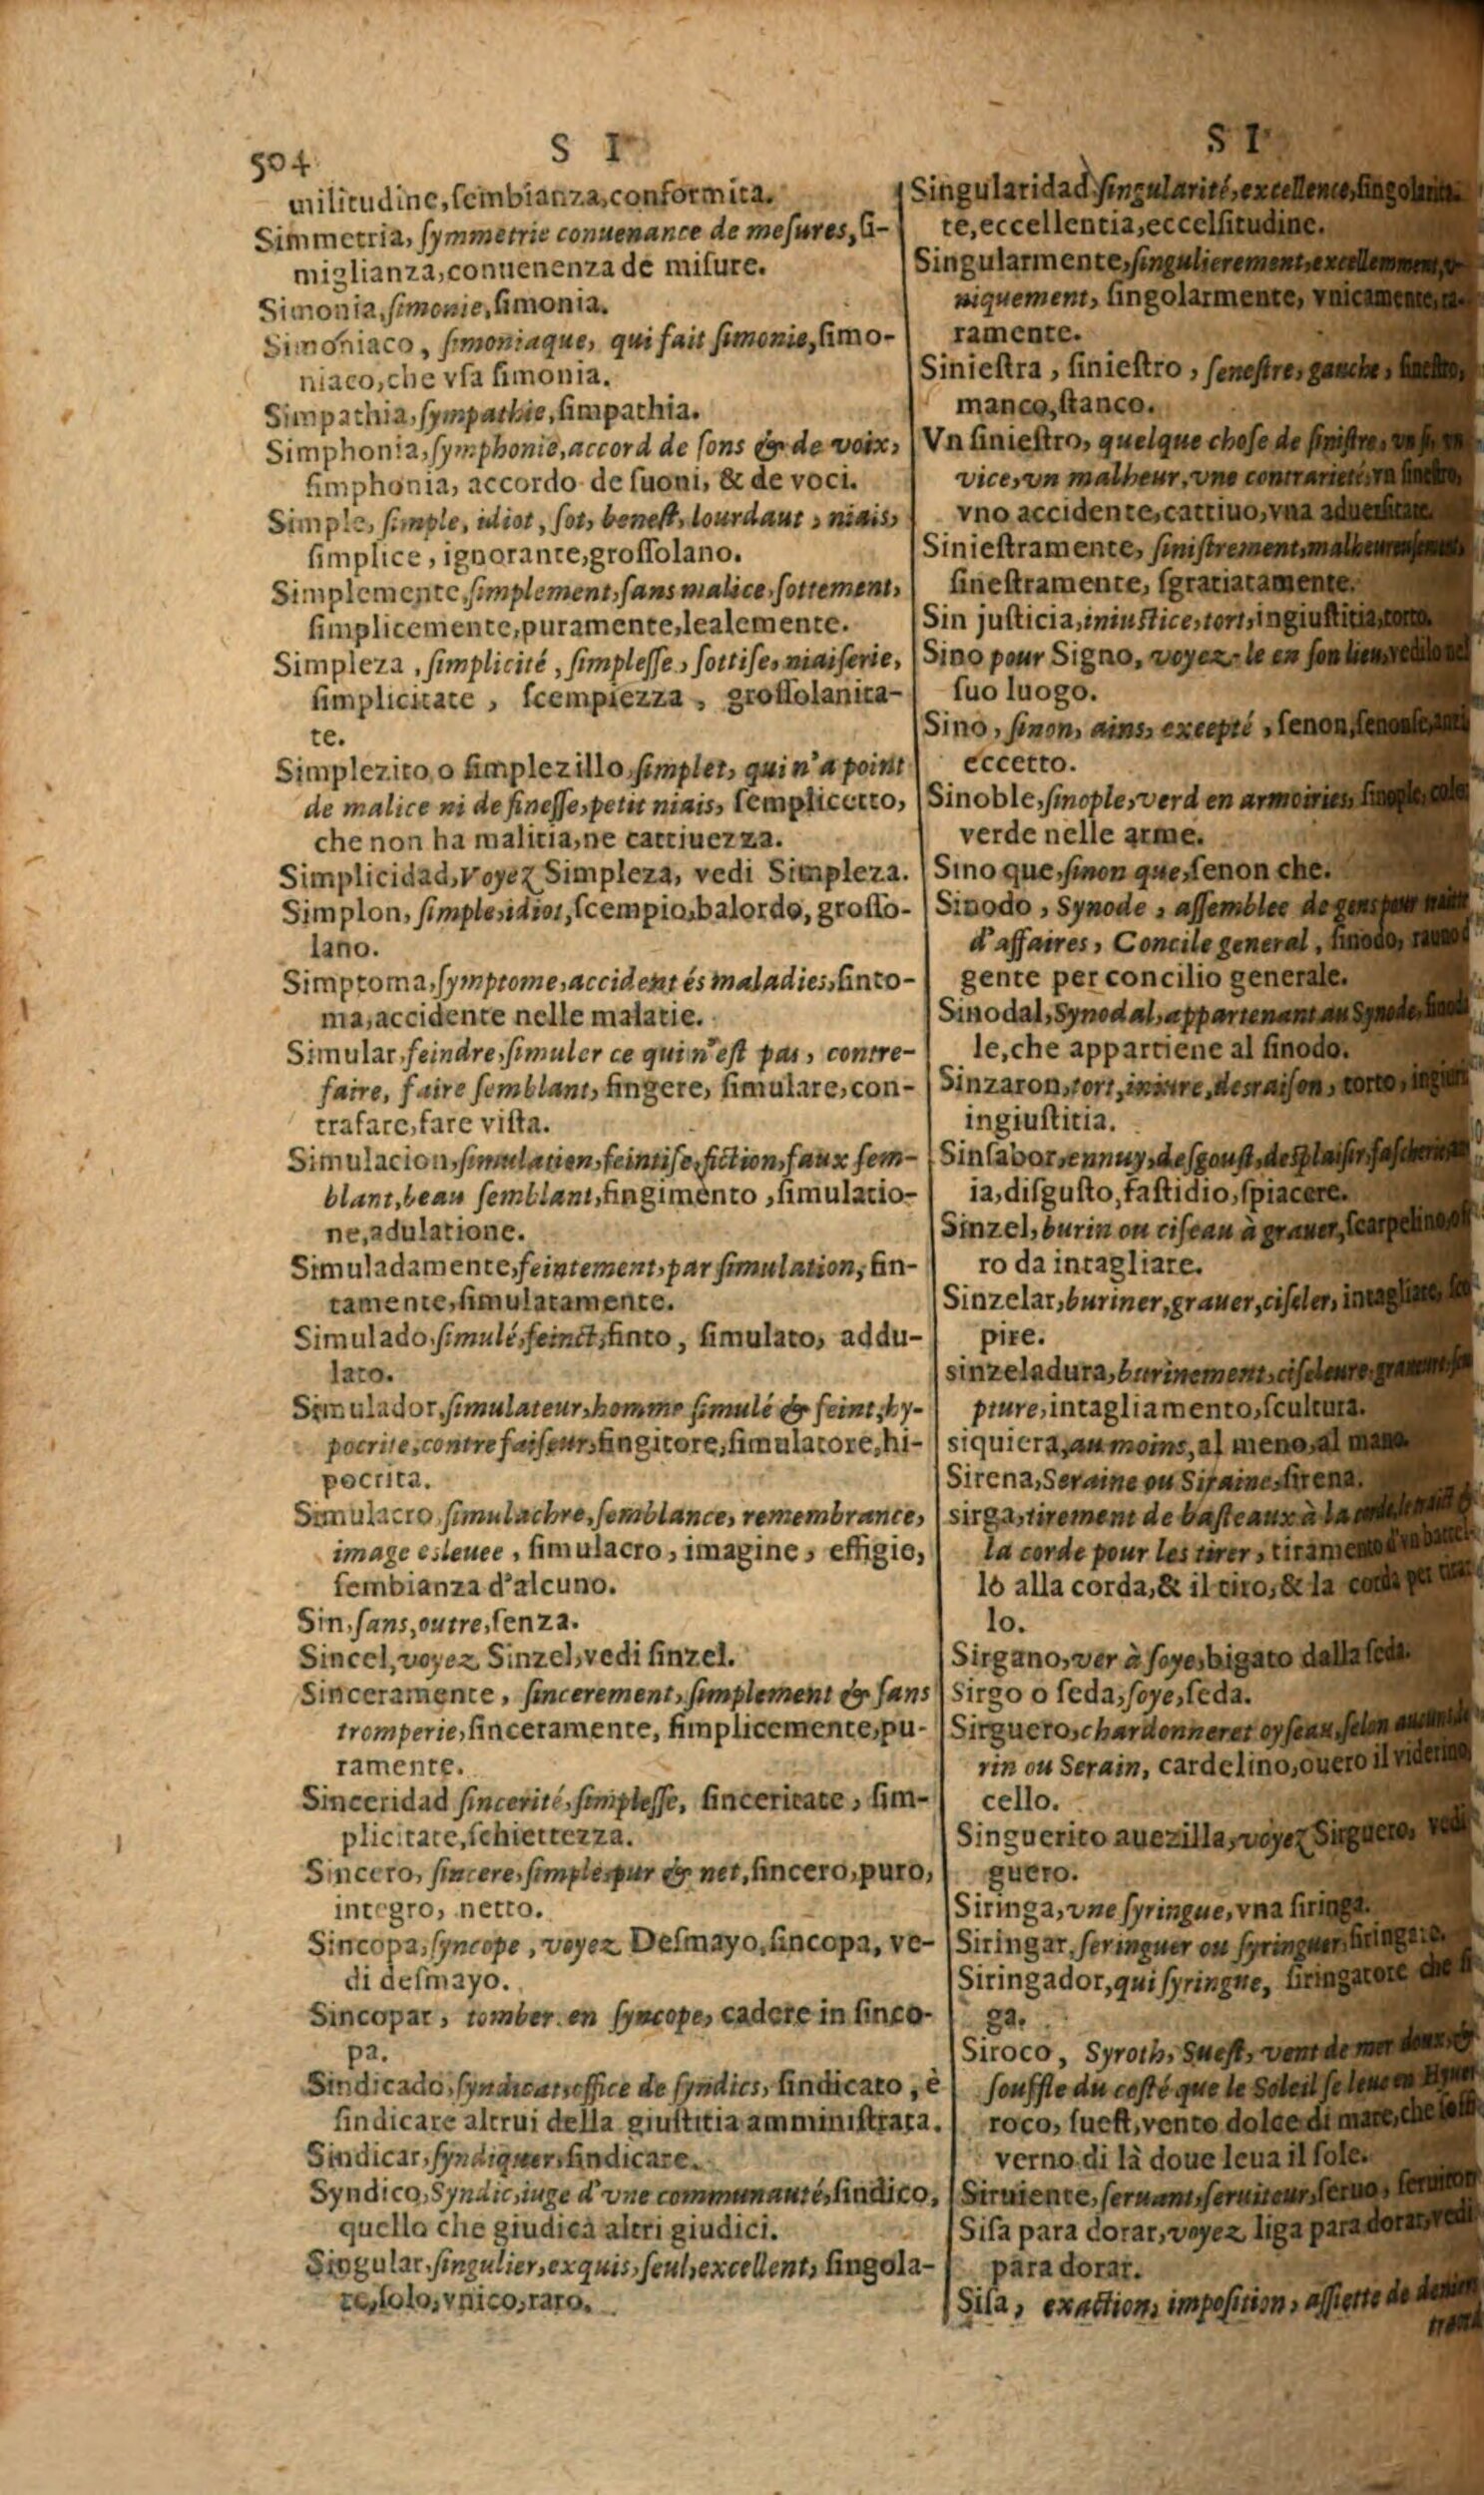 504
S I
militudine,ſembianza,conformita.
Simmetria, ſymmetrie conuenance de meſures, ſi-
miglianza,conuenenza de miſure.
Simonia, ſimonie, ſimonia.
Simoniaco, ſimoniaque, qui fait ſimonie, ſimo-
niaco,che vſa ſimonia.
Simpathia, ſympathie, ſimpathia.
Simphonia, ſymphonie, accord de ſons & de voix,
ſimphonia, accordo de ſuoni, & de voci.
Simple, ſimple, idiot, ſot, beneſt, lourdaut, niais,
ſimplice, ignorante,groſſolano.
Simplemente, ſimplement, ſans malice, ſottement,
ſimplicemente,puramente,lealemente.
Simpleza, ſimplicité, ſimpleſſe, ſottiſe, niaiſerie,
ſimplicitate, ſcempiezza, groſſolanita-
te.
Simplezito o ſimplezillo, ſimplet, qui n'a point
de malice ni de fineſſe, petit niais, ſemplicetto,
che non ha malitia,ne cattiuezza.
Simplicidad, Voyez Simpleza, vedi Simpleza.
Simplon, ſimple, idiot, ſcempio, balordo, groſſo-
lano.
Simptoma, ſymptome, accident és maladies, ſinto-
ma,accidente nelle malatie.
Simular, feindre, ſimuler ce qui n'eſt pas, contre-
faire, faire ſemblant, fingere, ſimulare, con-
trafare,fare viſta.
Simulacion, ſimulation, feintiſe, fiction, faux ſem-
blant, beau ſemblant, fingimento, ſimulatio-
ne,adulatione.
Simuladamente, feintement, par ſimulation, fin-
tamente,ſimulatamente.
Simulado, ſimulé, feinct, finto, ſimulato, addu-
lato.
Simulador, ſimulateur, homme ſimulé & feint, hy-
pocrite, contrefaiſeur, fingitore, ſimulatore, hi-
pocrita.
Simulacro, ſimulachre, ſemblance, remembrance,
image esleuee, ſimulacro, imagine, effigie,
ſembianza d'alcuno.
Sin, ſans, outre, ſenza.
Sincel, voyez Sinzel, vedi ſinzel.
Sinceramente, ſincerement, ſimplement & ſans
tromperie, ſinceramente, ſimplicemente, pu-
ramente.
Sinceridad ſincerité, ſimpleſſe, ſinceritate, ſim-
plicitate,ſchiettezza.
Sincero, ſincere, ſimple, pur & net, ſincero, puro,
integro, netto.
Sincopa, ſyncope, voyez Deſmayo, ſincopa, ve-
di deſmayo.
Sincopar, tomber en ſyncope, cadere in ſinco-
pa.
Sindicado, ſyndicat, office de ſyndics, ſindicato, è
ſindicare altrui della giuſtitia amminiſtrata.
Sindicar, ſyndiquer, ſindicare.
Syndico, Syndic, iuge d'vne communauté, ſindico,
quello che giudica altri giudici.
Singular, ſingulier, exquis, ſeul, excellent, ſingola-
re,ſolo,vnico,raro.
S I
Singularidad ſingularité, excellence, ſingolarita-
te,eccellentia,eccelſitudine.
Singularmente, ſingulierement, excellemment, v-
niquement, ſingolarmente, vnicamente, ra-
ramente.
Sinieſtra, ſinieſtro, ſeneſtre, gauche, ſineſtro,
manco,ſtanco.
Vn ſinieſtro, quelque choſe de ſiniſtre,
vice, vn malheur, vne contrarieté, vn ſineſtro,
vno accidente, cattiuo, vna aduerſitate.
Sinieſtramente, ſiniſtrement, malheureuſement,
ſineſtramente, ſgratiatamente.
Sin juſticia, iniuſtice, tort, ingiuſtitia, torto.
Sino pour Signo, voyez-le en ſon lieu, vedilo nel
ſuo luogo.
Sino, ſinon, ains, excepté, ſenon, ſenonſe, anzi
eccetto.
Sinoble, ſinople, verd en armoiries, ſinople, color
verde nelle arme.
Sino que, ſinon que, ſenon che.
Sinodo, Synode, aſſemblee de gens pour traiter
d'affaires, Concile general, ſinodo,
gente per concilio generale.
Sinodal, Synodal, appartenant au Synode, ſinoda
le,che appartiene al ſinodo.
Sinzaron, tort, iniure, desraiſon, torto,
ingiuſtitia.
Sinſabor, ennuy, deſgouſt, desplaiſir,
ia,diſguſto,faſtidio,ſpiacere.
Sinzel, burin ou ciſeau à grauer, ſcarpelino,
ro da intagliare.
Sinzelar, buriner, grauer, ciſeler, intagliare,
pire.
sinzeladura, burinement, ciſeleure,
pture,intagliamento,ſcultura.
siquiera, au moins, al meno, al mano.
Sirena, Seraine ou Siraine, ſirena.
sirga, tirement de baſteaux à la
la corde pour les tirer, tiramento d'vn battel-
lo alla corda,& il tiro,& la corda per tirar
lo.
Sirgano, ver à ſoye, bigato dalla ſeda.
Sirgo o ſeda, ſoye, ſeda.
Sirguero, chardonneret oyſeau, ſelon
rin ou Serain, cardelino, ouero il
cello.
Singuerito auezilla, voyez Sirguero, vedi
guero.
Siringa, vne ſyringue, vna ſiringa.
Siringar, ſeringuer ou ſyringuer, ſiringare.
Siringador, qui ſyringue, ſiringatore che ſi
ga.
Siroco, Syroth, Sueſt, vent de mer doux, &
ſouffle du coſté que le Soleil ſe leue en
roco, ſueſt, vento dolce di mare, che
verno di là doue leua il ſole.
Siruiente, ſeruant, ſeruiteur, ſeruo,
Siſa para dorar, voyez liga para dorar, vedi
para dorar.
Siſa, exaction, impoſition, aſſiette de